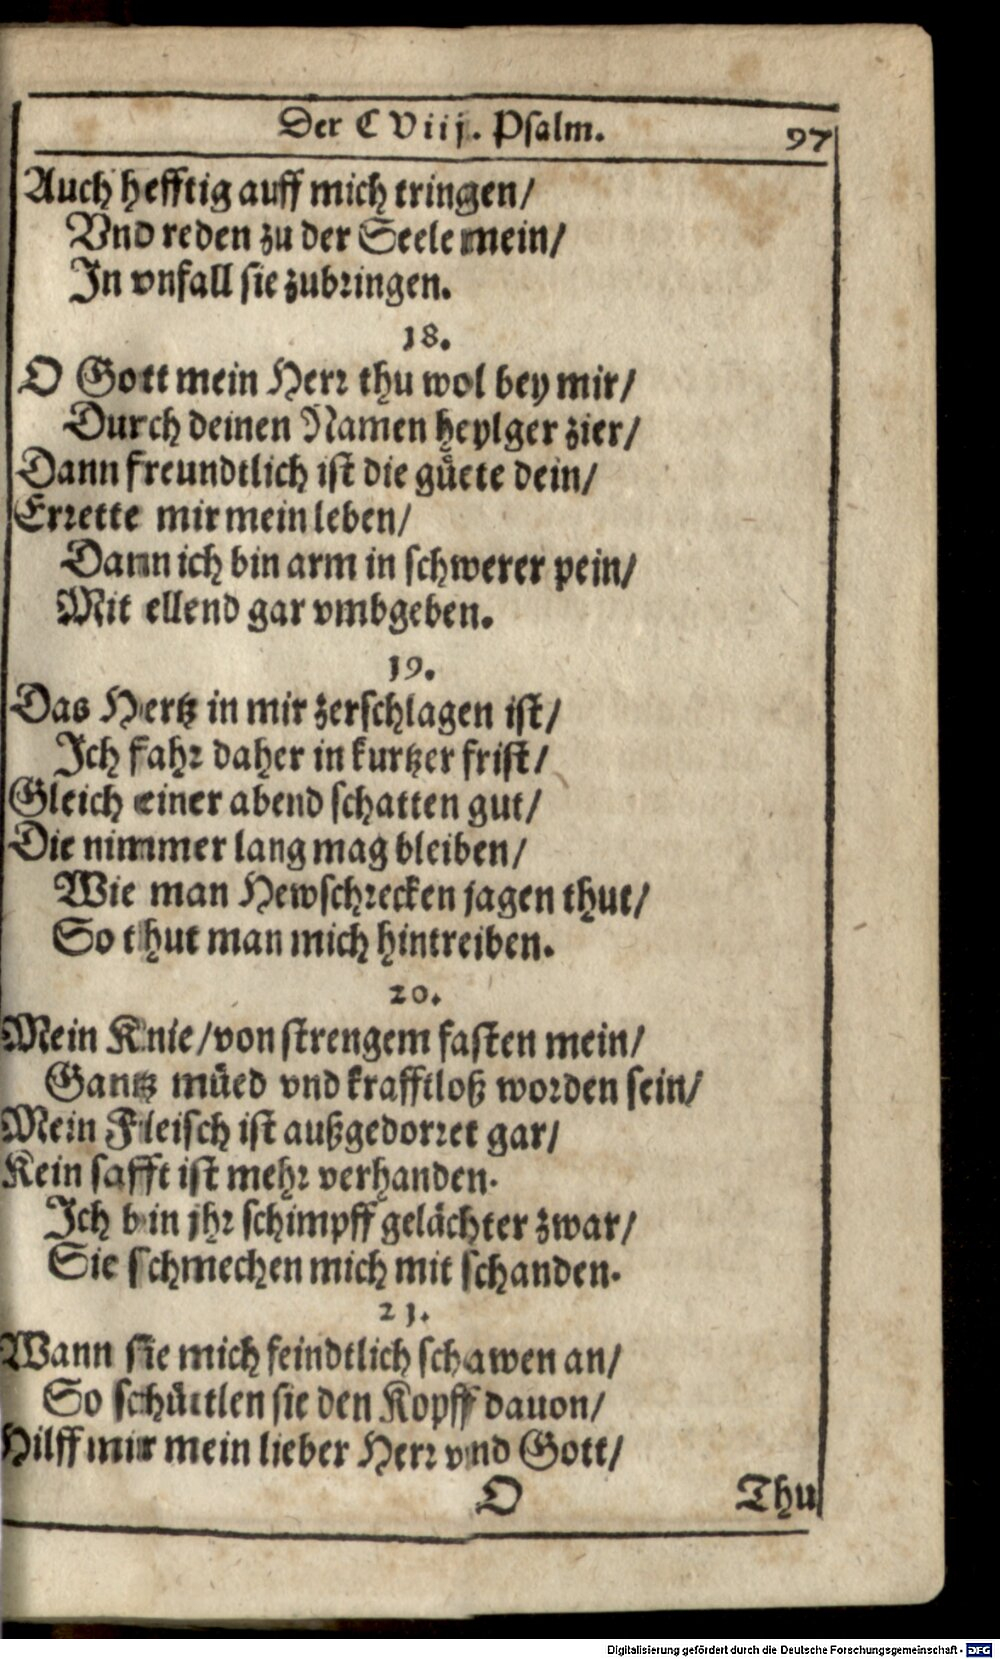 Der CViij. Psalm. 97
Auch hefftig auff mich tringen/
Vnd reden zu der Seele mein/
In vnfall sie zubringen.
18.
O Gott mein Herr thu wol bey mir/
Durch deinen Namen heylger zier/
Dann freundtlich ist die güete dein/
Errette mir mein leben/
Dann ich bin arm in schwerer pein/
Mit ellend gar vmbgeben.
19.
Das Hertz in mir zerschlagen ist/
Ich fahr daher in kurtzer frist/
Gleich einer abend schatten gut/
Die nimmer lang mag bleiben/
Wie man Hewschrecken jagen thut/
So thut man mich hintreiben.
20.
Mein Knie/von strengem fasten mein/
Gantz müed vnd krafftloß worden sein/
Mein Fleisch ist außgedorret gar/
Kein safft ist mehr verhanden.
Ich bin jhr schimpff gelächter zwar/
Sie schmechen mich mit schanden.
21.
Wann sie mich feindtlich schawen an/
So schüttlen sie den Kopff dauon/
Hilff mir mein lieber Herr vnd Gott/
O Thu
Digitalisierung gefördert durch die Deutsche Forschungsgemeinschaft - DFG